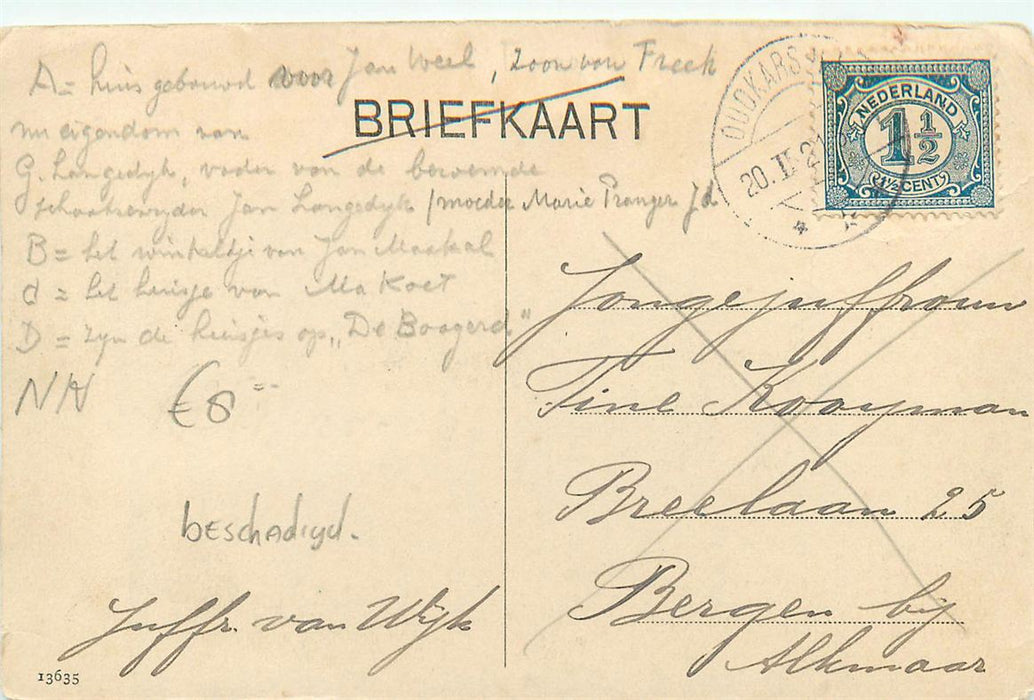 A = huis gebouwd voor Jan Weel, zoon van Freek
nu eigendom van
G. Langedyk, vader van de beroemde
schaatsenryder Jan Langedyk / moeder Marie Pranger Jd
B = het winkeltje van Jan Maskal
C = het huisje van Ma Koet
D = zyn de huisjes op „De Boogerd"
NH €8=--
beschadigd.
Juffr. van Wijk
13635
BRIEFKAART
OUDKARS
20.II.21
NEDERLAND
1½
1½ CENT
Jongejuffrouw
Tine Kooyman
Breelaan 25
Bergen bij
Alkmaar